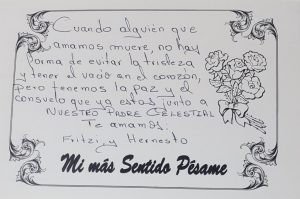 Cuando alguién que
amamos muere, no hay
forma de evitar la tristeza
y tener el vacío en el corazón,
pero tenemos la paz y el
consuelo que ya estas junto a
NUESTRO PADRE CELESTIAL
Te amamos:
Fritz y Hernesto
Mi más Sentido Pésame